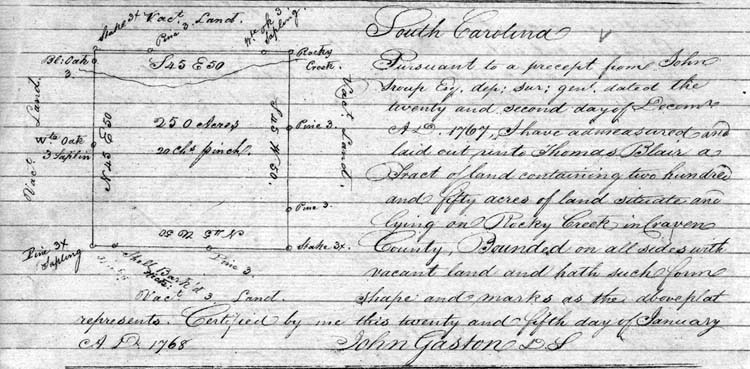 Stake 3x Vact. Land.
Pine 3.
Wte Ok 3 Sapling
Bl: Oak 3.
S 45 E 50
Rocky Creek.
Vact Land.
Wte Oak 3 Saplin
N 45 E 50
250 Acres
20 Chs pr inch.
S 45 W 50.
Vact Land.
Pine 3.
Pine 3.
Pine 3x Sapling
N 45 W 50
Stake 3x.
Shell Bark'd
Pine 3.
Vact 3. Land.
South Carolina
Pursuant to a precept from John
Troup Esq. dep; sur; genl. dated the
twenty and second day of Decemr
A.D. 1767, I have admeasured and
laid out unto Thomas Blair a
Tract of land containing two hundred
and fifty acres of land situate and
lying on Rocky Creek in Craven
County, Bounded on all sides with
vacant land and hath such form
shape and marks as the above plat
represents. Certified by me this twenty and fifth day of January
A.D. 1768 John Gaston D S